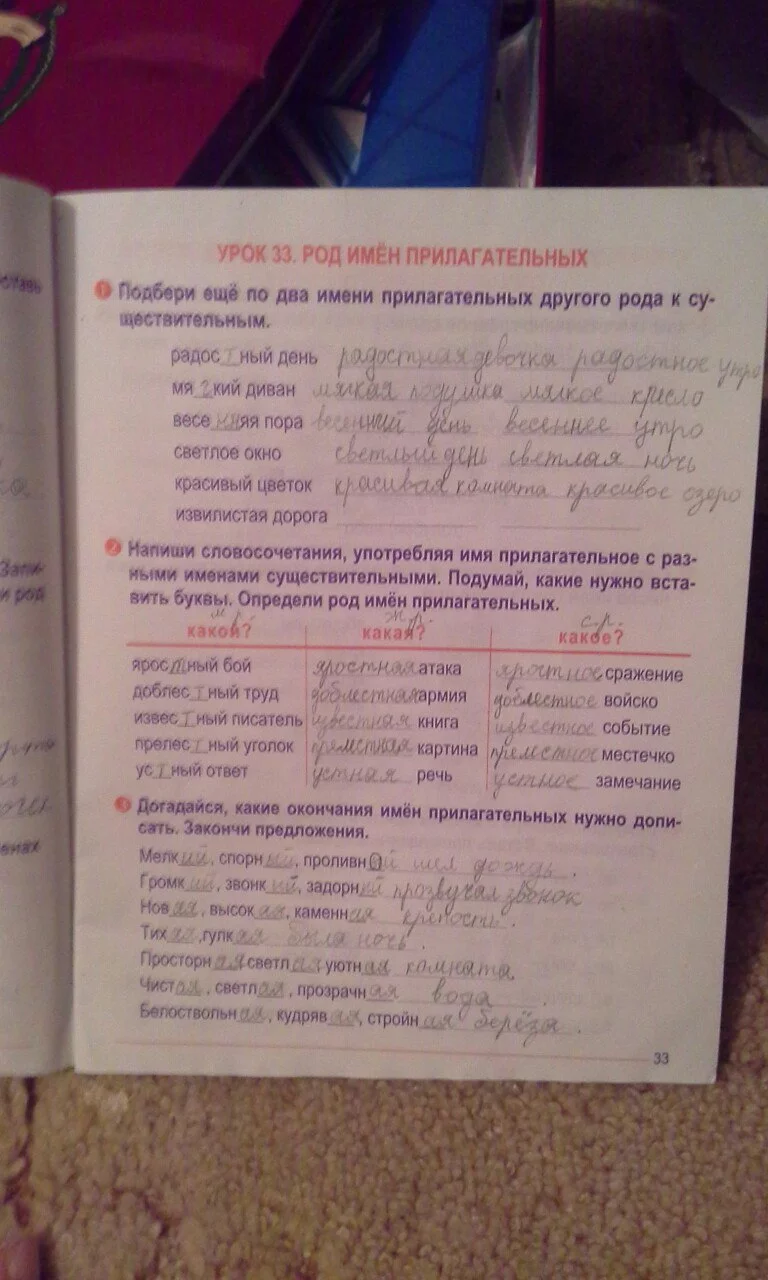 УРОК 33. РОД ИМЁН ПРИЛАГАТЕЛЬНЫХ
1 Подбери ещё по два имени прилагательных другого рода к су-
ществительным.
радостный день радостная девочка радостное утро
мягкий диван мягкая подушка мягкое кресло
весенняя пора весенний день весеннее утро
светлое окно светлый день светлая ночь
красивый цветок красивая комната красивое озеро
извилистая дорога
2 Напиши словосочетания, употребляя имя прилагательное с раз-
ными именами существительными. Подумай, какие нужно вста-
вить буквы. Определи род имён прилагательных.
м.р. ж.р. с.р.
какой? какая? какое?
яростный бой яростная атака яростное сражение
доблестный труд доблестная армия доблестное войско
известный писатель известная книга известное событие
прелестный уголок прелестная картина прелестное местечко
устный ответ устная речь устное замечание
3 Догадайся, какие окончания имён прилагательных нужно допи-
сать. Закончи предложения.
Мелкий, спорный, проливной шел дождь.
Громкий, звонкий, задорный прозвучал звонок
Новая, высокая, каменная крепость.
Тихая, гулкая была ночь.
Просторная светлая уютная комната
Чистая, светлая, прозрачная вода.
Белоствольная, кудрявая, стройная берёза.
33